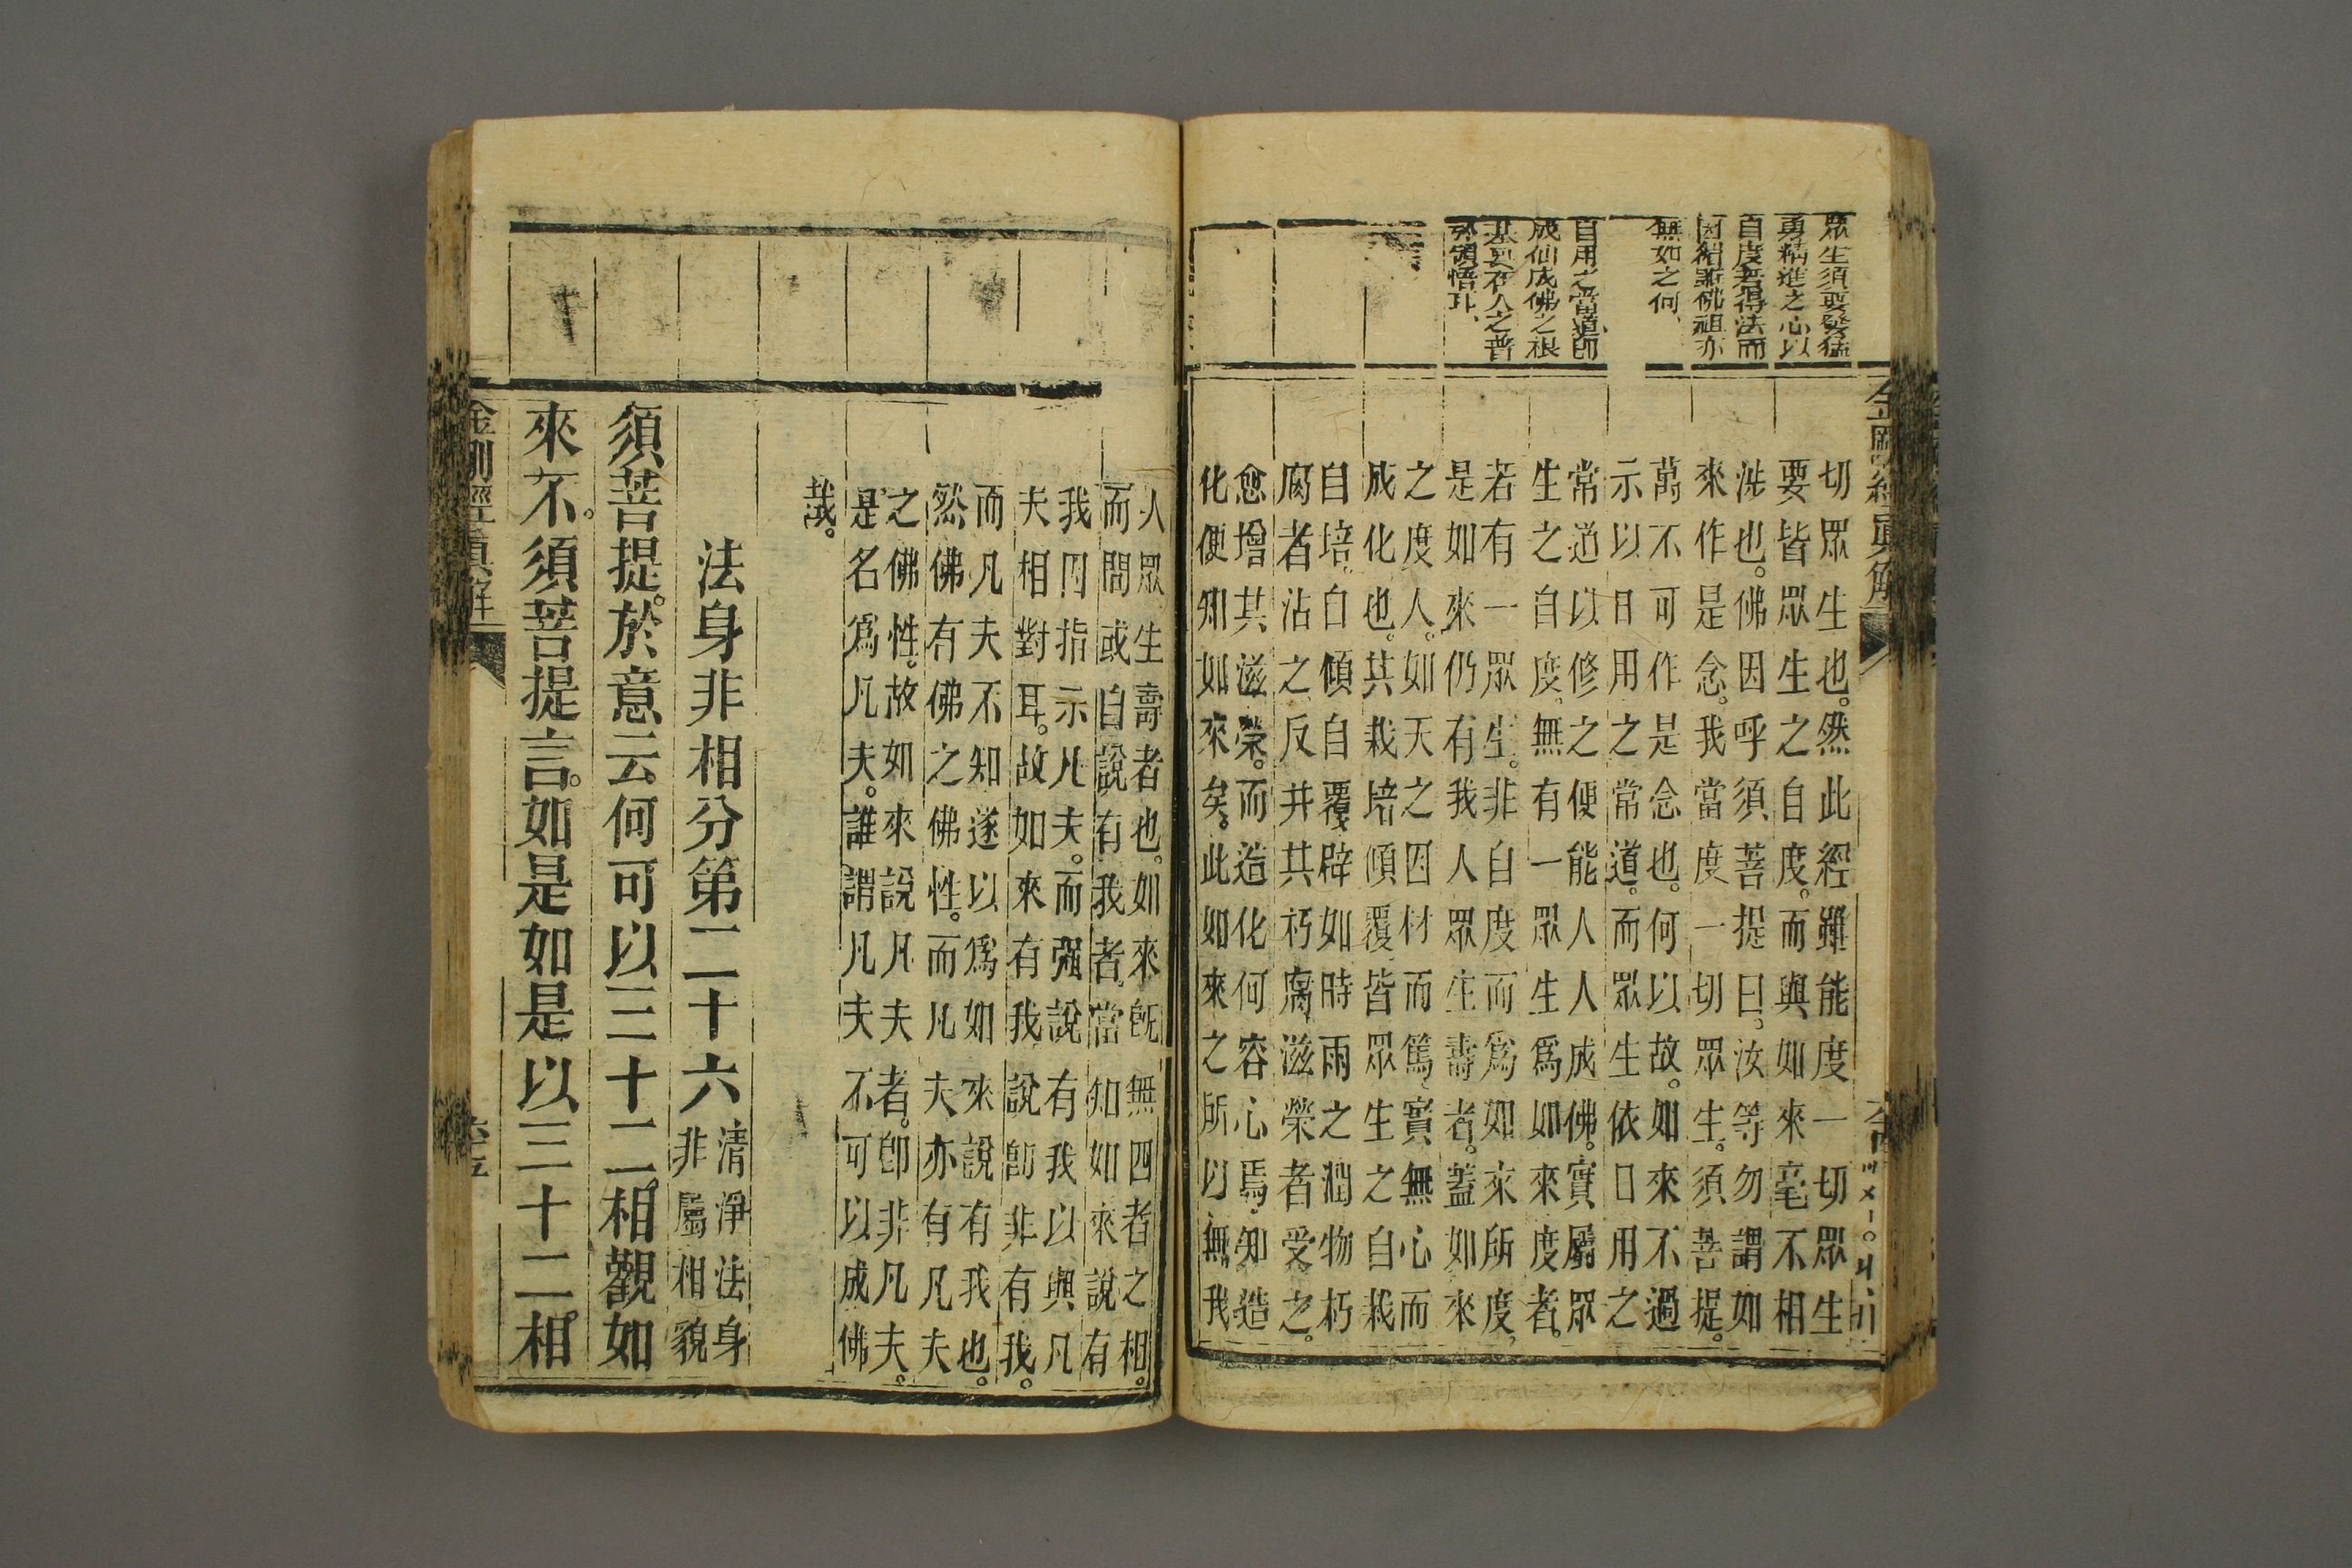 金剛經眞解
眾生須要發猛
勇精進之心以
自度若得法而
雖佛祖亦
無如之何、
自用之常道卽
成仙成佛之根
基只在人之善
承領悟耳、
切眾生也。然此經雖能度一切眾生
要皆眾生之自度。而與如來毫不相
涉也。佛因呼須菩提曰。汝等勿謂如
來作是念。我當度一切眾生。須菩提。
萬不可作是念也。何以故。如來不過
示以日用之常道。而眾生依日用之
常道以修之便能人人成佛。實屬眾
生之自度。無有一眾生爲如來度者。
若有一眾生。非自度而爲如來所度。
是如來仍有我人眾生壽者。蓋如來
之度人。如天之因材而篤。實無心而
成化也。其栽培傾覆皆眾生之自栽
自培自傾自覆辟如時雨之潤物朽
腐者沾之反并其朽腐滋榮者受之。
愈增其滋榮。而造化何容心焉。知造
化便知如來矣。此如來之所以無我
人眾生壽者也。如來旣無四者之相。
而間或自說有我者。當知如來說有
我因指示凡夫。而强說有我以與凡
夫相對耳。故如來有我說卽非有我。
而凡夫不知遂以爲如來說有我也。
然佛有佛之佛性。而凡夫亦有凡夫
之佛性。故如來說凡夫者。卽非凡夫。
是名爲凡夫。誰謂凡夫不可以成佛
哉。
法身非相分第二十六
清淨法身
非屬相貌
須菩提。於意云何可以三十二相觀如
來不。須菩提言。如是如是以三十二相
金剛經眞解